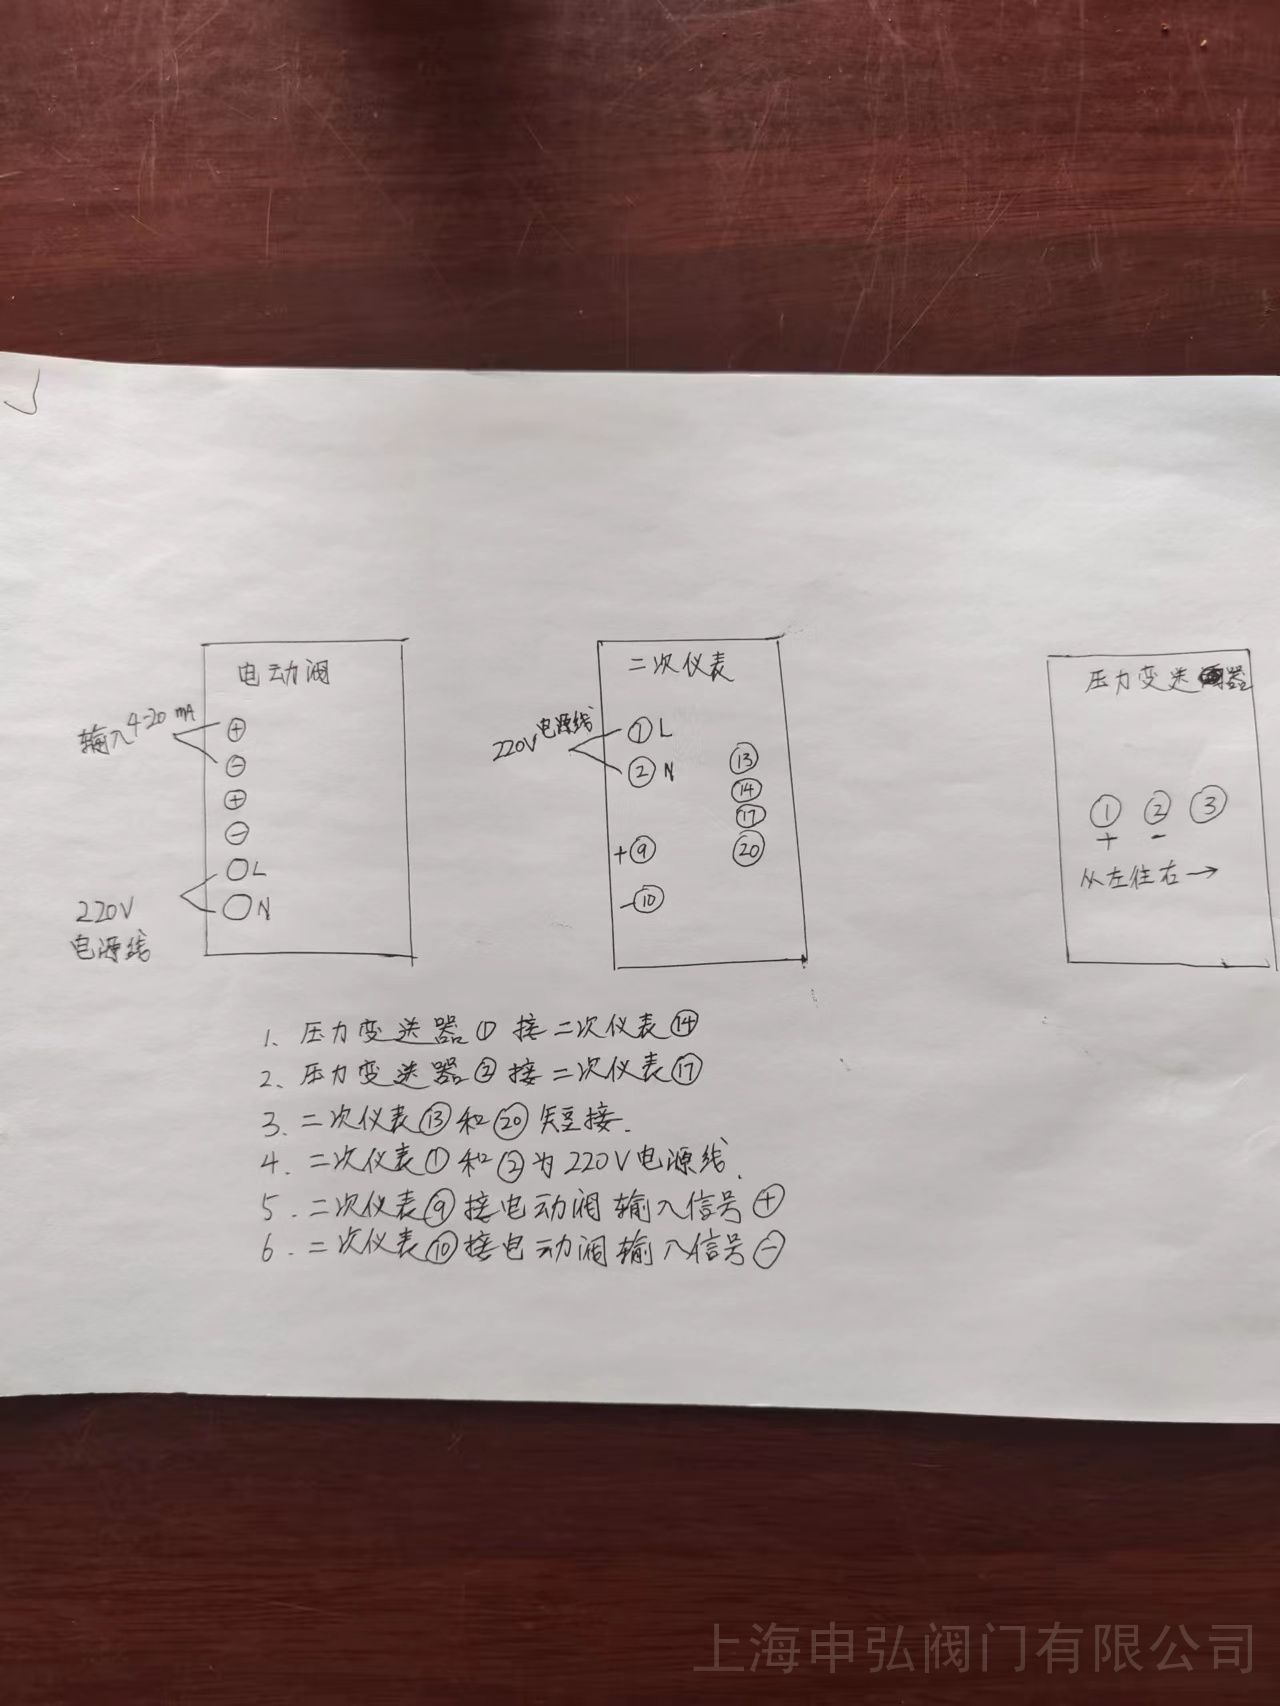 电动阀
输入4-20 mA
+
-
+
-
L
N
220V
电源线
二次仪表
220V电源线
① L
② N
+⑨
-⑩
⑬
⑭
⑰
⑳
压力变送器
① ② ③
+ -
从左往右→
1、压力变送器①接二次仪表⑭
2、压力变送器②接二次仪表⑰
3、二次仪表⑬和⑳短接.
4.二次仪表①和②为220V电源线.
5.二次仪表⑨接电动阀输入信号⊕
6.二次仪表⑩接电动阀输入信号⊖
上海申弘阀门有限公司